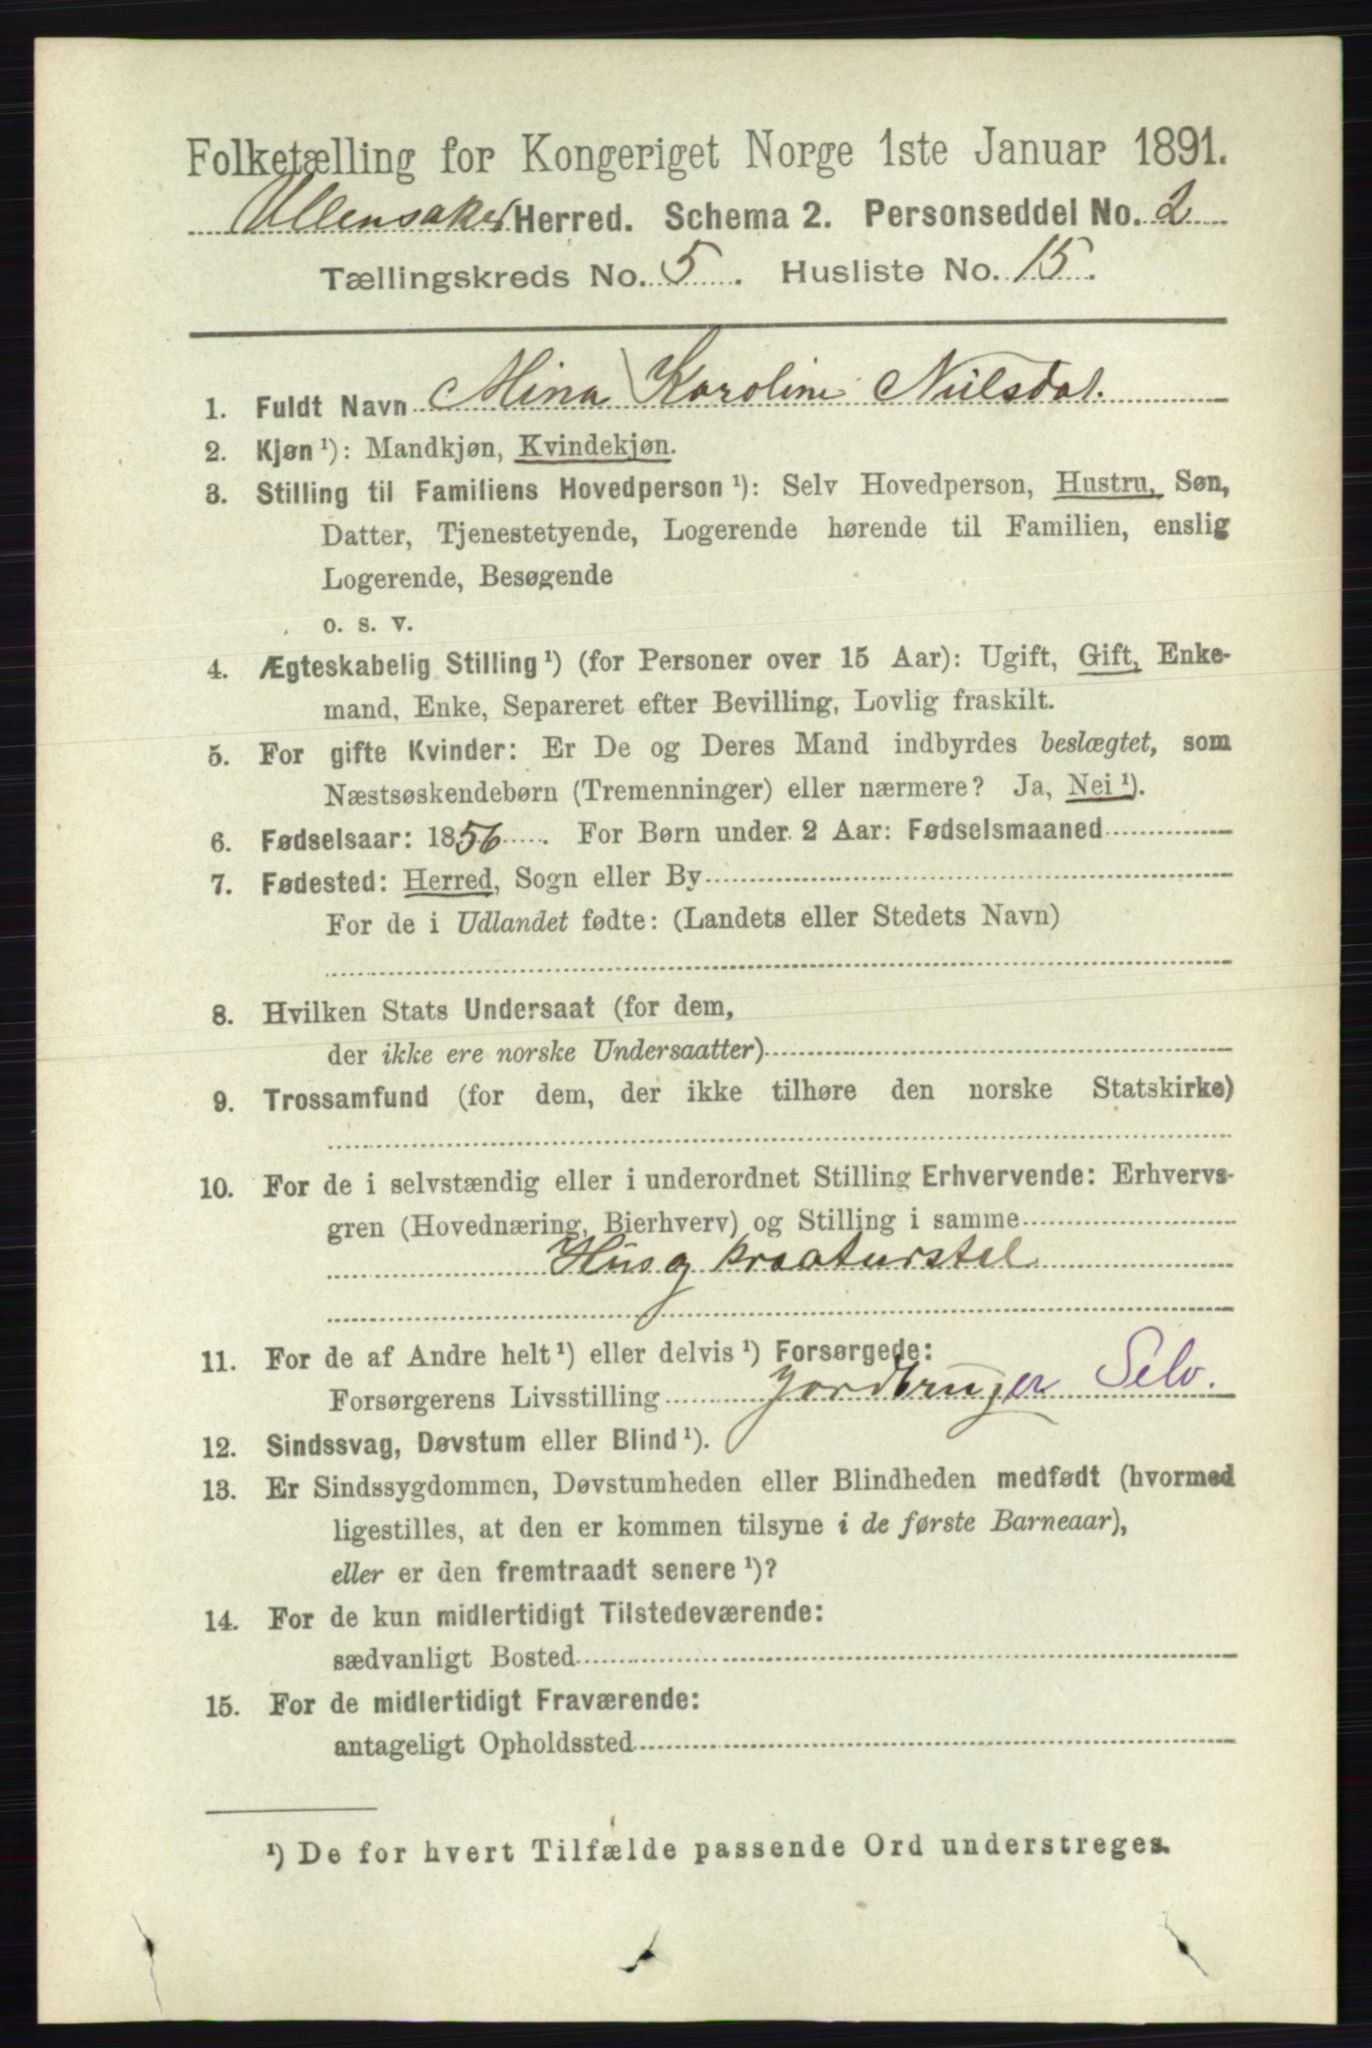 Folketælling for Kongeriget Norge 1ste Januar 1891.
Ullensaker Herred. Schema 2. Personseddel No. 2
Tællingskreds No. 5. Husliste No. 15.
1. Fuldt Navn Mina Karoline Nielsdat.
2. Kjøn ¹): Mandkjøn, Kvindekjøn.
3. Stilling til Familiens Hovedperson ¹): Selv Hovedperson, Hustru, Søn,
Datter, Tjenestetyende, Logerende hørende til Familien, enslig
Logerende, Besøgende
o. s. v.
4. Ægteskabelig Stilling ¹) (for Personer over 15 Aar): Ugift, Gift, Enke-
mand, Enke, Separeret efter Bevilling, Lovlig fraskilt.
5. For gifte Kvinder: Er De og Deres Mand indbyrdes beslægtet, som
Næstsøskendebørn (Tremenninger) eller nærmere? Ja, Nei ¹).
6. Fødselsaar: 1856. For Børn under 2 Aar: Fødselsmaaned
7. Fødested: Herred, Sogn eller By
For de i Udlandet fødte: (Landets eller Stedets Navn)
8. Hvilken Stats Undersaat (for dem,
der ikke ere norske Undersaatter)
9. Trossamfund (for dem, der ikke tilhøre den norske Statskirke)
10. For de i selvstændig eller i underordnet Stilling Erhvervende: Erhvervs-
gren (Hovednæring, Bierhverv) og Stilling i samme
Hus og kraaturstel
11. For de af Andre helt ¹) eller delvis ¹) Forsørgede:
Forsørgerens Livsstilling Jordbruger Selv.
12. Sindssvag, Døvstum eller Blind ¹).
13. Er Sindssygdommen, Døvstumheden eller Blindheden medfødt (hvormed
ligestilles, at den er kommen tilsyne i de første Barneaar),
eller er den fremtraadt senere ¹)?
14. For de kun midlertidigt Tilstedeværende:
sædvanligt Bosted
15. For de midlertidigt Fraværende:
antageligt Opholdssted
¹) De for hvert Tilfælde passende Ord understreges.